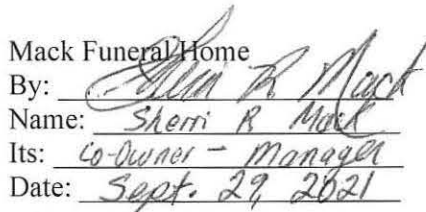 Mack Funeral Home
By: Sherri R Mack
Name: Sherri R Mack
Its: Co-Owner - Manager
Date: Sept. 29, 2021